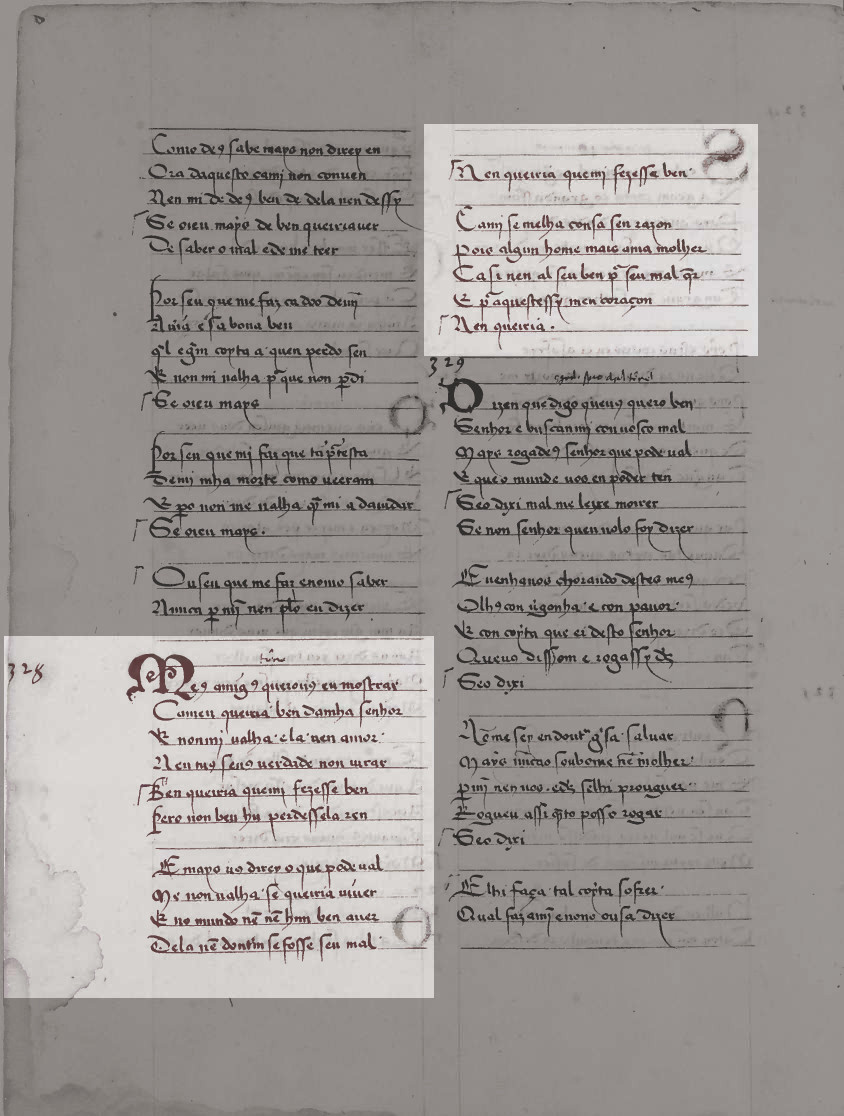 Como de9 sabe mays non direy en
Ora daquesto cami non conuen
Nen mi de de9 ben de dela nen dessy
Se oieu mays de ben queiriauer
De saber o mal ede me teer
Por seu que me faz ca doo
bona ben
coyta a quen perdo sen
E non mi ualha que non perdi
Se oieu mays
Por sen que mi faz que
Demi mha morte como ueeram
E non me ualha mi a dauidar
Se oieu mays.
Ou seu que me faz enomo saber
Nunca nen eu dizer
328
Me9 amig9 querou9 eu mostrar
Comeu queiria ben damha senhor
E nonmi ualha ela nen amor
Nen me9 sen9 uerdade non iurar
Ben queiria quemi fezesse ben
Pero non ben hu perdessela ren
E mays uo direy o que pode ual
Me non ualha se queiria uiuer
E no mundo nẽ nẽ ben auer
Dela nẽ se fosse seu mal
Nen queiria quemi fezesse ben
Cami semelha cousa sen razon
Pois algun home mais ama molher
Ca si nen al seu ben seu mal
E men coraçon
Nen queiria.
329
Dizen que digo queu9 quero ben
Senhor e buscanmi con uosco mal
Mays rogade9 senhor que pode ual
E que o mund e uos en poder ten
Seo dixi mal me leyxe morrer
Se non senhor quen uolo foy dizer
E uenhauos chorando destes me9
Olh9 con uergonha e con pauor
E con coyta que ei desto senhor
Queuo dissom e rogassy
Seo dixi
me sey en saluar
Mays molher
nen uos. selhi prouguer
Rogueu assi posso rogar
Seo dixi
E lhi faça tal coyta sofrer
Qual faz ami enono ousa dizer